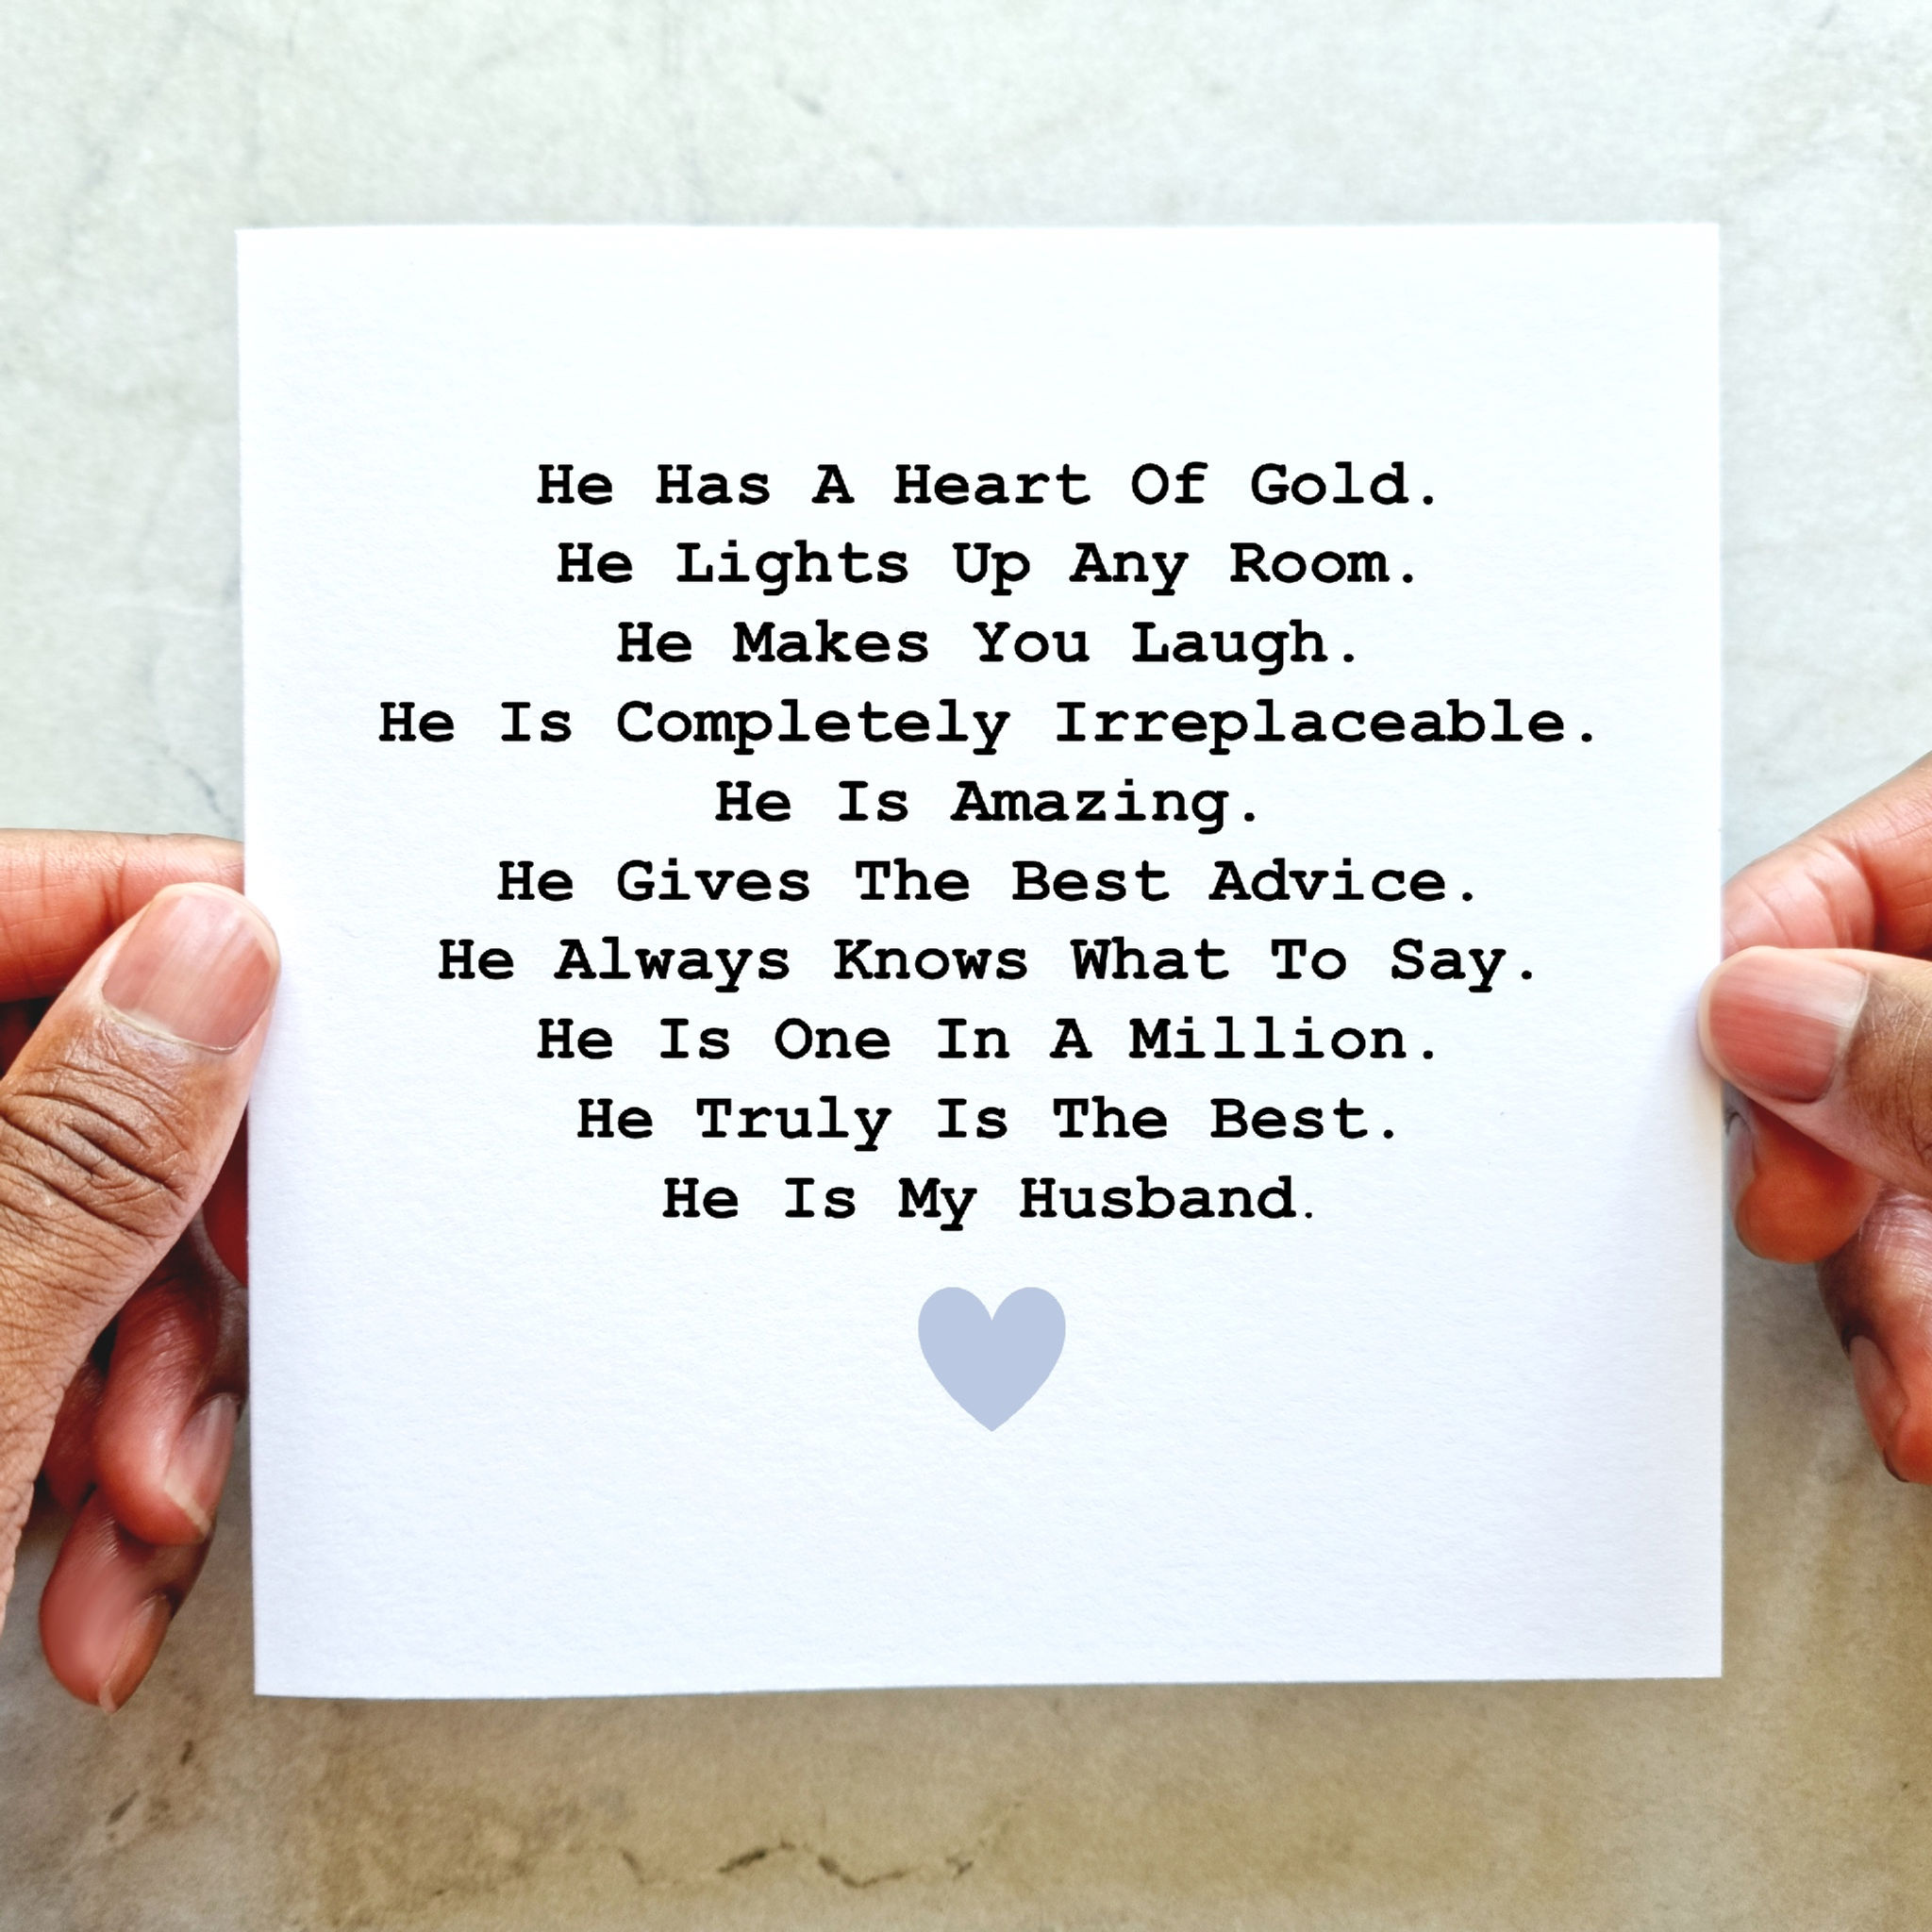 He Has A Heart Of Gold.
He Lights Up Any Room.
He Makes You Laugh.
He Is Completely Irreplaceable.
He Is Amazing.
He Gives The Best Advice.
He Always Knows What To Say.
He Is One In A Million.
He Truly Is The Best.
He Is My Husband.